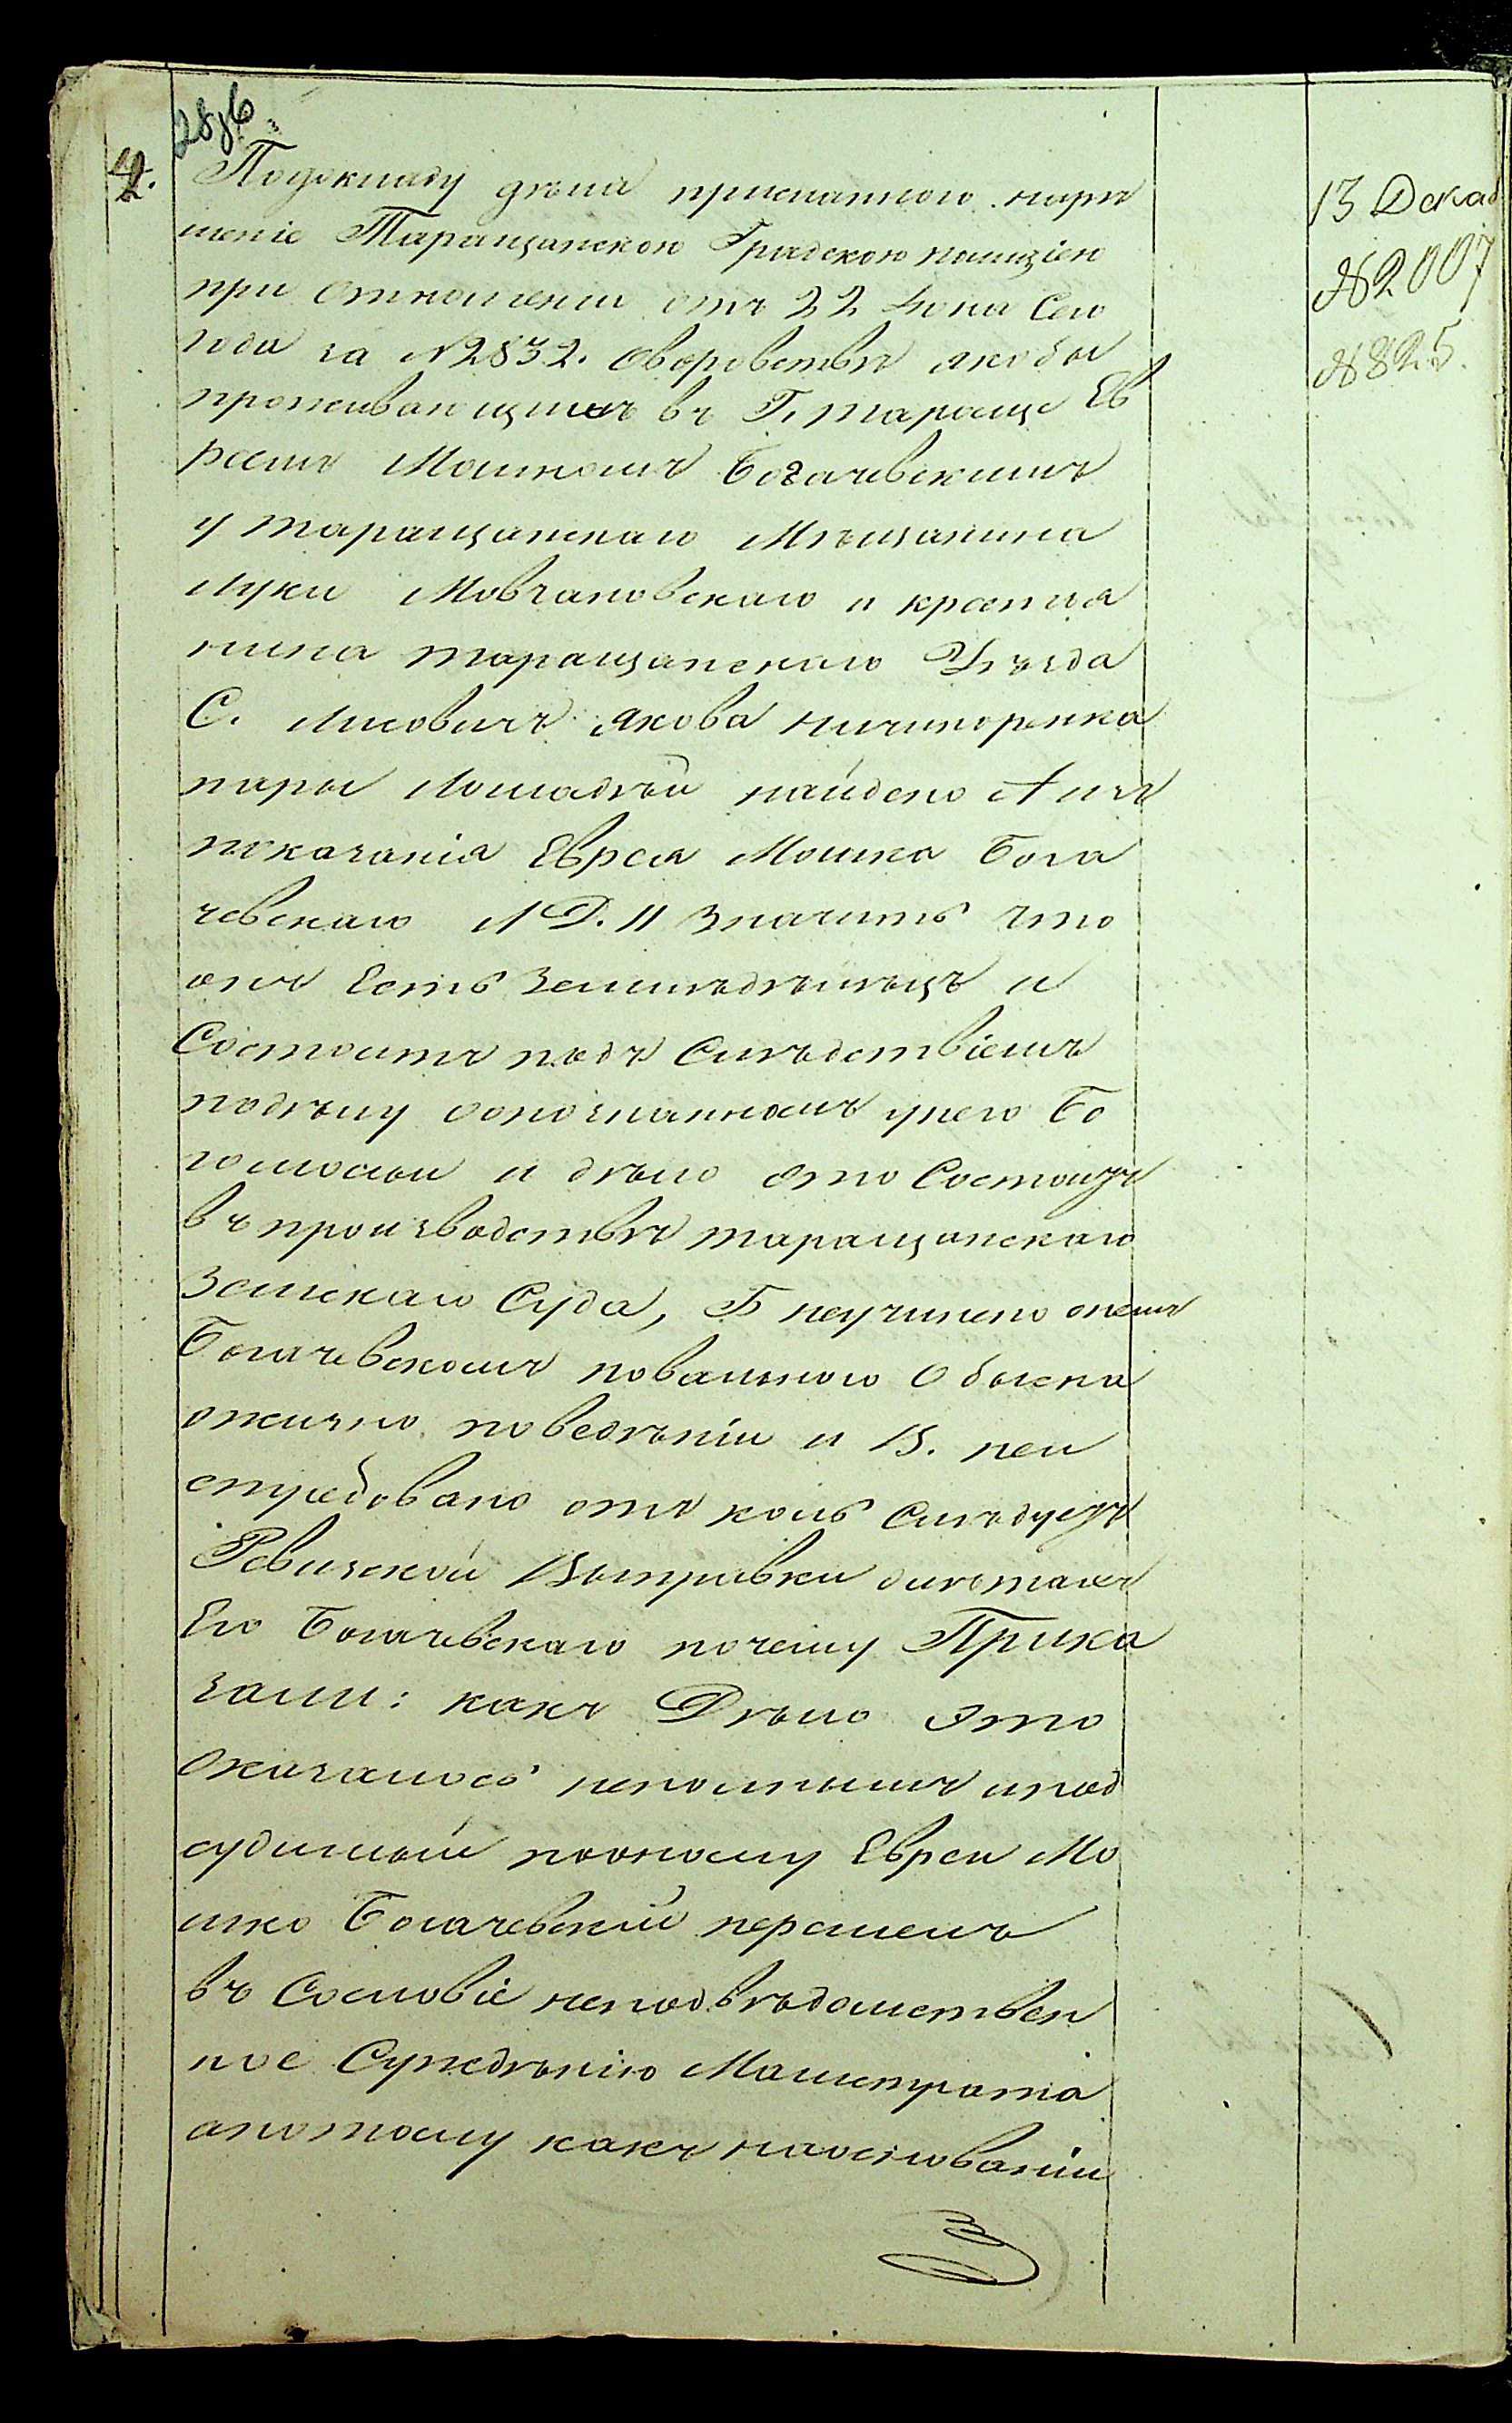 2876
4.
Подокладу дѣла присланного нарѣ
шеніе Таращанскою Градскою полиціею
при отношеніи отъ 22 Іюня Сего
года за №2832. оворовствѣ якобы
проживающимъ въ Г. таращѣ Ев
реемъ Мошкомъ Богачевскимъ
у таращанскаго Мѣщанина
Луки Мовчановскаго и крестья
нина таращанскаго Уѣзда
С. Лисовичъ Якова ничипоренка
пары Лошадѣй найдено А изъ
показанія Еврея Мошка Бога
чевскаго Л Д. 11 Значитъ что
онъ Есть Земледѣлецъ и
Состоитъ подъ Слѣдствіемъ
подѣлу оопознанномъ унего Бо
гомольи и дѣло это Состоитъ
въ производствѣ таращанскаго
Земскаго Суда, Б неучинено онемъ
Богачевскомъ повального Обыска
ожизни поведѣніи и В. неи
стребовано отъ коль слѣдуетъ
Ревизской Выправки олѣтахъ
Его Богачевскаго почему Прика
зали: какъ Дѣло Это
Оказалось неполнымъ ипод
судимый пооному Еврей Мо
шко Богачевскій перешелъ
въ Сословіе неподвѣдомствен
ное Сужденію Магистрата
апотому какъ наоснованіи
13 Декаб
№2007
№825.